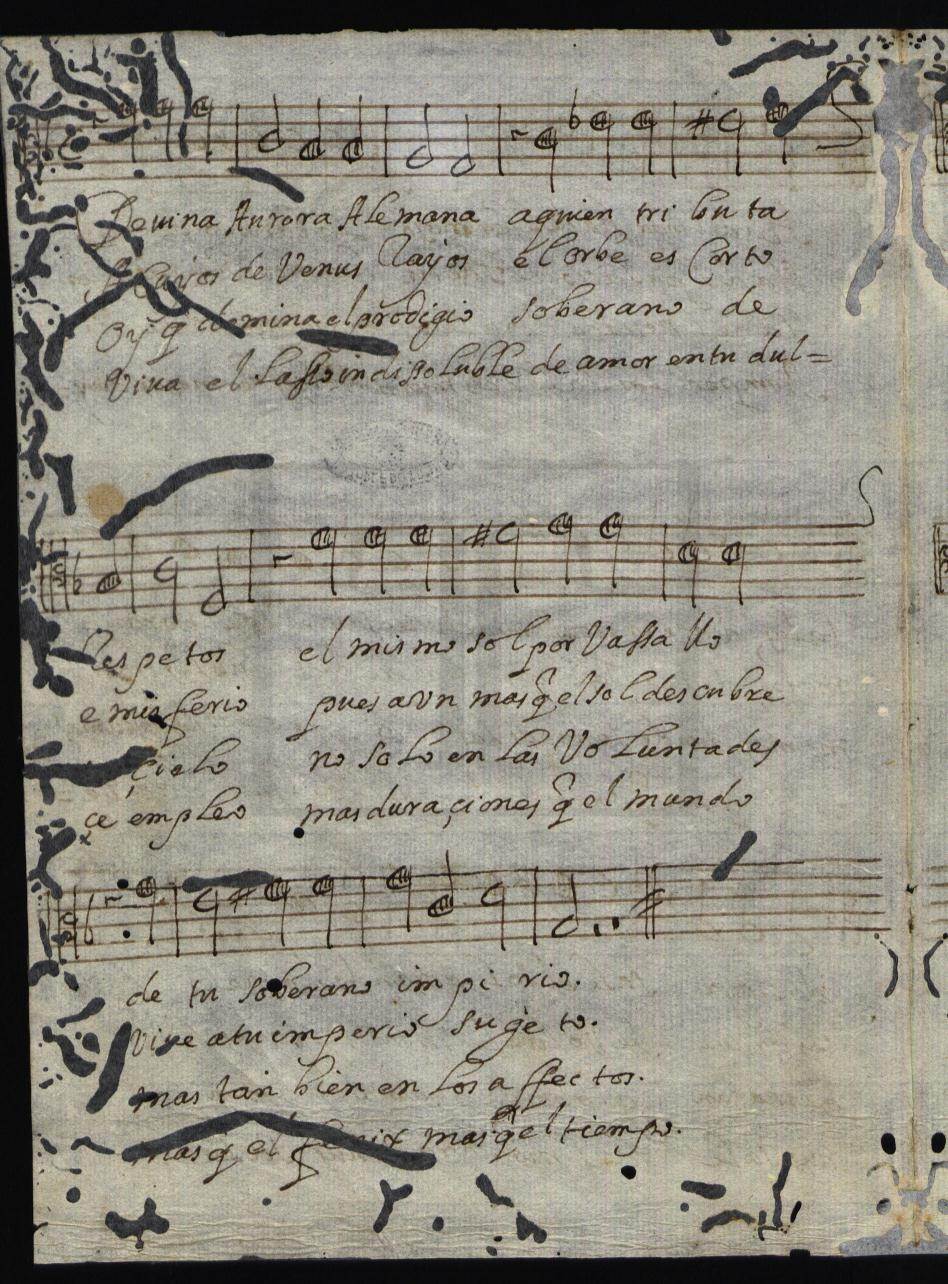 Devina Aurora Alemana aquien tri bu ta
de Venus Rayos el orbe es Corto
Oy q̃ domina el prodigio soberano de
Viva el Lasso indissoluble de amor en tu dul=
Respetos el mismo sol por Vassallo
emisferio pues aun mas q̃ el sol descubre
Cielo no solo en las Voluntades
çe empleo mas duraçiones q̃ el mundo
de tu soberano im pi rio.
vive atu imperio sugeto.
mas tan bien en los affectos.
mas q̃ el fenix mas q̃ el tiempo.